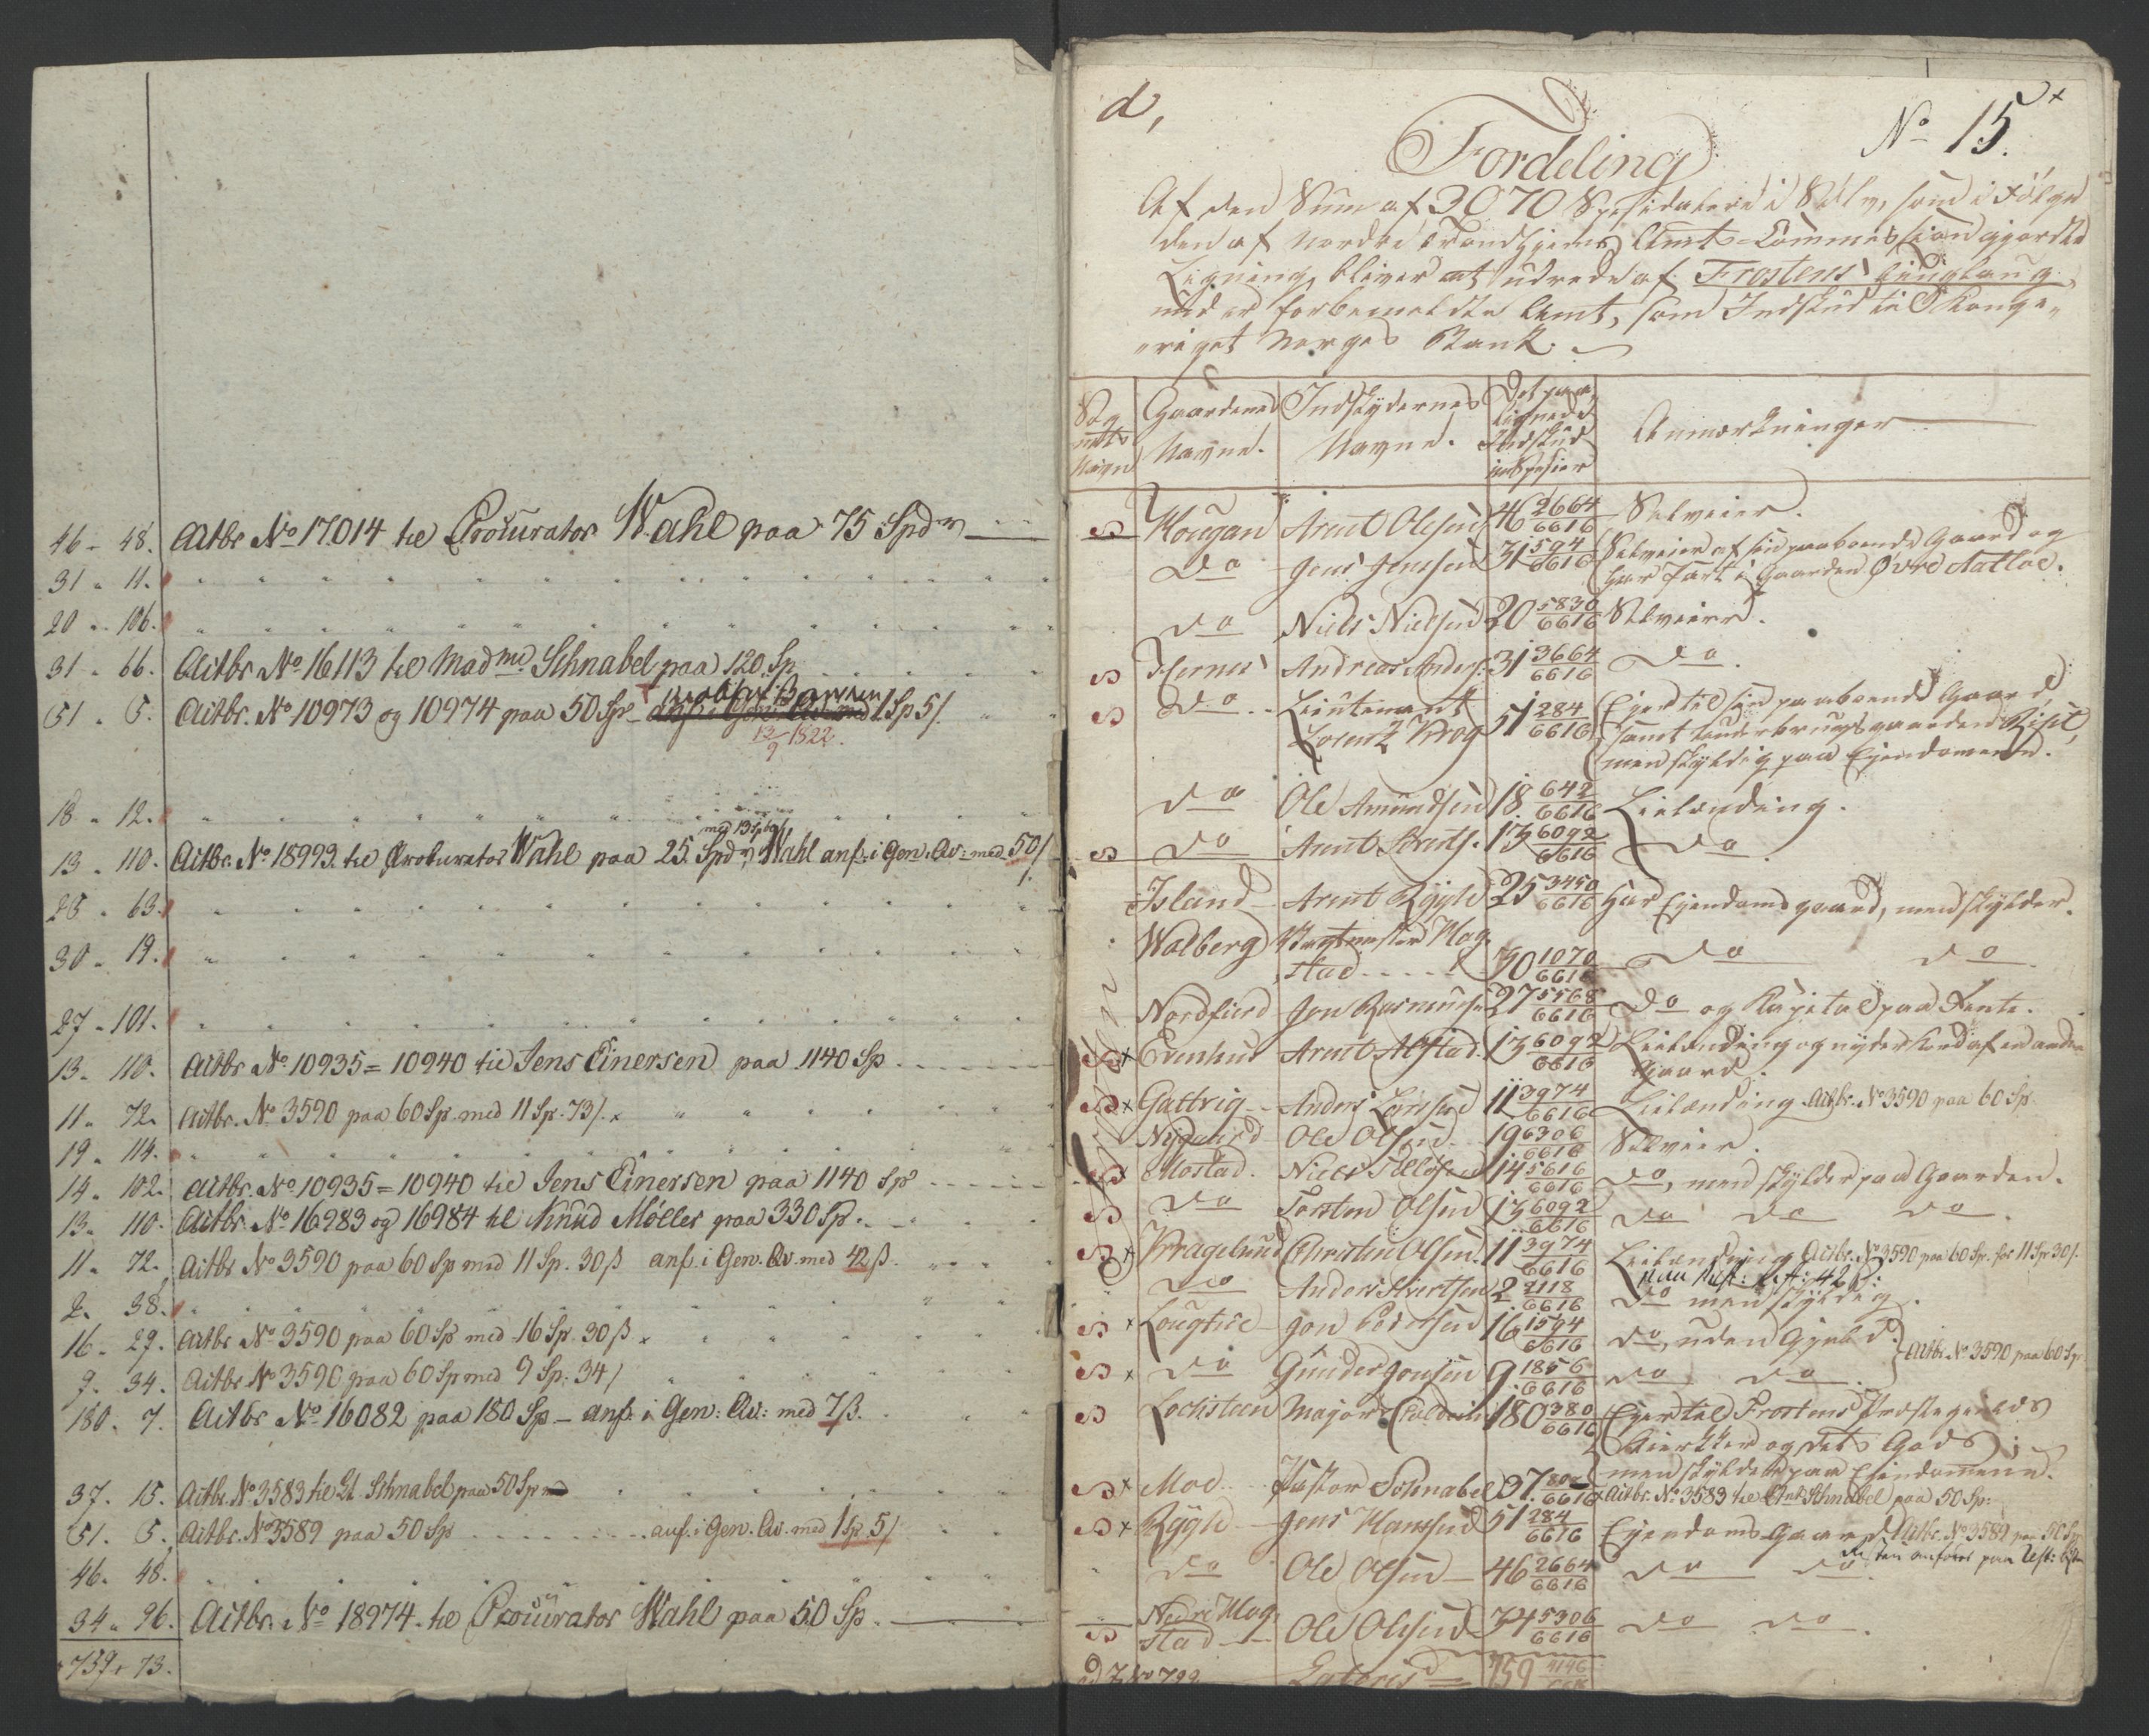 46 - 48. Actbr No 17.014 til Procurator Wahl paa 75 Spdr
31 - 11.
20 - 106.
31 - 66. Actbr No 16113 til Madme Schnabel paa 120 Sp
51 - 5. Actbr. No 10973 og 10974 paa 50 Sp 1 Sp 5/.
12/9 1822.
18 - 12.
med 13 Sp 60/
13 - 110. Actbr. No 18993 til Procurator Wahl paa 25 Spdr Wahl anf: i Gen: Qv: med 50/
25 - 63.
30 - 19.
27 - 101.
13 - 110. Actbr No 10935 = 10940 til Jens Einersen paa 1140 Sp
11 - 72. Actbr. No 3590 paa 60 Sp. med 11 Sp. 73/. x
19 - 114.
14 - 102. Actbr. No 10935 = 10940 til Jens Einersen paa 1140 Sp
13 - 110. Actbr No 16983 og 16984 til Knud Møller paa 330 Sp.
11 - 72. Actbr No 3590 paa 60 Sp med 11 Sp. 30 ß anf. i Gen. Qv. med 42 ß.
2. 38.
16 - 29. Actbr No 3590 paa 60 Sp med 16 Sp. 30 ß x
9. 34. Actbr No 3590 paa 60 Sp med 9 Sp. 34/
180. 7. Actbr No 16082 paa 180 Sp - anf: i Gen: Qv: med 7 ß.
37. 15. Actbr. No 3583 til Lt. Schnabel paa 50 Sp
51. 5. Actbr. No 3589 paa 50 Sp anf. i Gen. Qv. med 1 Sp 5/
46. 48.
34 - 96. Actbr. No 18974 til Procurator Wahl paa 50 Sp.
759 - 73.
d,
No 15. x
Fordeling
Af den Sum af 3070 Speciedalere i Sølv, som i Følge
den af Nordre Trondhjems Amts-Commission gjorte
Ligning, bliver at udrede af Frostens Tinglaug
under forbemeldte Amt, som Indskud til Konge-
riget Norges Bank.
Sognets Navn | Gaardenes Navne. | Indskydernes Navne. | Det paalignede Indskud i Spesier | Anmærkninger
S Hougan Arnt Olsen 46 2664/6616 Selveier.
Do Jens Jensen 31 594/6616 Selveier af sin paaboende Gaard og
har Part i Gaarden Øvre Aatloe.
Do Niels Nielsen 20 5830/6616 Selveier.
S Hernes Andreas Anders: 31 3664/6616 Do.
S Do Lieutenant Lorentz Krog 51 284/6616 Ejer til sin paaboende Gaard,
samt underbrugsgaarden
men skyldig paa Ejendomene.
Do Ole Amundsen 18 642/6616 Leilænding.
S Do Arnt Arnts. 13 6092/6616 Do.
Island Arnt Rygh 25 3450/6616 Har Ejendoms gaard, men skylder.
Walberg Vagtmester Mogstad 30 1070/6616 Do Do
Nordfierd Jon Rasmuss. 27 5568/6616 Do og Kapital paa Rente.
S x Evenhus Arnt Alstad. 13 6092/6616 Leilænding og nyder en anden
Gaard.
S x Galtvig Anders Larsen 11 3974/6616 Leilænding. Actbr. No 3590 paa 60 Sp.
Nygaard Ole Olsen 19 6306/6616 Selveier.
S Mostad. Niels 14 5616/6616 Do, men skylder paa Gaarden.
S Do Torsten Olsen 13 6092/6616 Do Do Do.
S x Kragelund Christen Olsen. 11 3974/6616 Leilænding Actbr. No 3590 paa 60 Sp. for 11 Sp 30/.
paa Rest: 42 ß:
Do Anders Sivertsen 2 2118/6616 Do men skyldig.
S x Lougtue Jon 16 1594/6616 Do, uden Gjeld.
S x Do Gunder Jonsen 9 1856/6616 Do Do. } Actbr. No 3590 paa 60 Sp.
S Lochsteen Major 180 380/6616 Ejer til Frostens Præstegjelds
Kierkker og dets Gods;
men skylder paa Ejendommene.
S x Moe Pastor Schnabel 37 6616 Actbr. No 3583 til Schnabel paa 50 Sp:
S x Rygh Jens Hansen 51 284/6616 Ejendoms Gaard. Actbr. No 3589 paa 50 Sp
Resten anføres paa Rest: Listen
Do Ole Olsen 46 2664/6616 Do Do.
S Nedre Mogstad Ole Olsen 34 5306/6616 Do Do.
Lateris 759 4146/6616